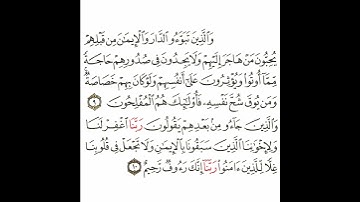 وَالَّذِينَ تَبَوَّءُو الدَّارَ وَالْإِيمَٰنَ مِن قَبْلِهِمْ
يُحِبُّونَ مَنْ هَاجَرَ إِلَيْهِمْ وَلَا يَجِدُونَ فِي صُدُورِهِمْ حَاجَةً
مِّمَّآ أُوتُوا وَيُؤْثِرُونَ عَلَىٰٓ أَنفُسِهِمْ وَلَوْ كَانَ بِهِمْ خَصَاصَةٌ ۚ
وَمَن يُوقَ شُحَّ نَفْسِهِ فَأُولَٰٓئِكَ هُمُ الْمُفْلِحُونَ ٩
وَالَّذِينَ جَآءُو مِنۢ بَعْدِهِمْ يَقُولُونَ رَبَّنَا اغْفِرْ لَنَا
وَلِإِخْوَٰنِنَا الَّذِينَ سَبَقُونَا بِالْإِيمَٰنِ وَلَا تَجْعَلْ فِي قُلُوبِنَا
غِلًّا لِّلَّذِينَ ءَامَنُوا رَبَّنَآ إِنَّكَ رَءُوفٌ رَّحِيمٌ ١٠